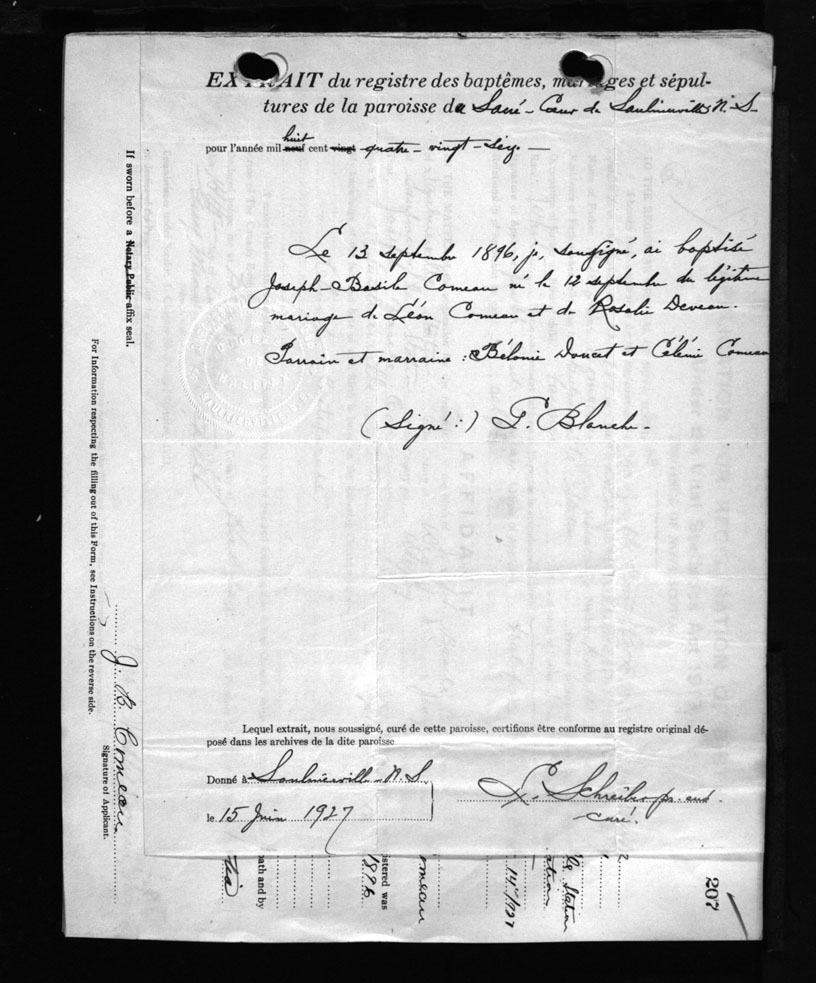 EXTRAIT du registre des baptêmes, mariages et sépul-
tures de la paroisse de Sacré-Coeur de Saulnierville N.S.
pour l'année mil huit neuf cent vingt quatre-vingt-seize.
Le 13 septembre 1896, je, sousigné, ai baptisé
Joseph-Basile Comeau né le 12 septembre du légitime
mariage de Léon Comeau et de Rosalie Deveau.
Parrain et marraine : Bélonie Doucet et Célénie Comeau
(Signé :) G. Blanche.
Lequel extrait, nous soussigné, curé de cette paroisse, certifions être conforme au registre original dé-
posé dans les archives de la dite paroisse
Donné à Saulnierville N.S.
le 15 Juin 1927
curé.
If sworn before a Notary Public affix seal.
For Information respecting the filling out of this Form, see Instructions on the reverse side.
J. B. Comeau
Signature of Applicant.
eath and by
tia
istered was
1896
omeau
14th/927
Station
ation
207